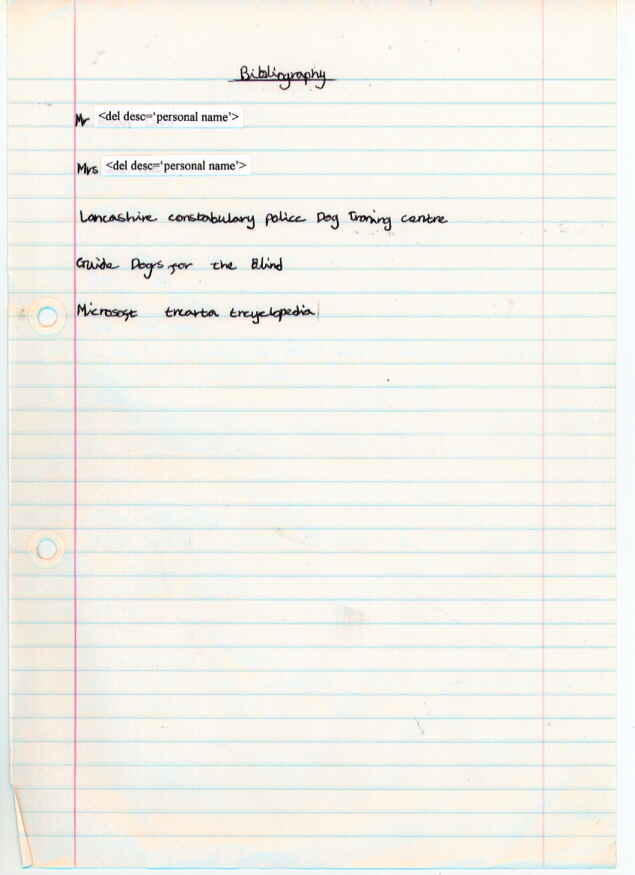 Bibliography
Mr <del desc='personal name'>
Mrs <del desc='personal name'>
Lancashire constabulary police Dog Traning centre
Guide Dogs for the Blind
Microsost trcarta trcyclopedia